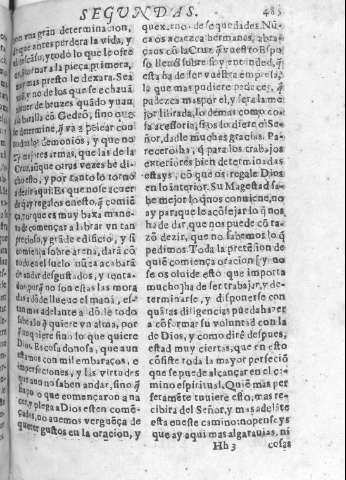 SEGUNDAS. 485
con vna grãn determinacion,
que antes perdera la vida, y
el descãso, y todo lo que le ofre
tornar a la pieça primera,
mas presto le dexara. Sea
y no de los que se echauã
de bruzes quãdo yuan
batalla cõ Gedeõ, sino que
se determine, q̃ va a pelear con
los demonios, y que no
ay mejores armas, que las de la
Cruz, aũque otras vezes he di-
cho esto, y por tanto lo torno
a dezir aqui: Es que no se acuer
de q̃ ay regalos en esto, q̃ comié
porque es muy baxa mane-
de començar a labrar vn tan
precioso, y grãde edificio, y si
comiença sobre arena, dará cõ
todo en el suelo: nunca acabarã
de andar desgustados, y tenta-
dos, porq̃ no son estas las mora
das dõde llueue el maná, es-
tan mas adelante a dõ le todo
sabe a lo q̃ quiere vn alma, por
no quiere sino lo que quiere
Dios. Es cosa donosa, que aun
estamos con mil embaraços, e
imperfeciones, y las virtudes
que aun no saben andar, sino q̃
ha poco que començaron a na
cer, y plega a Dios esten comẽ-
çadas, no auemos verguẽça de
querer gustos en la oracion, y
quexarnos de sequedades. Nũ-
ca os acaezca hermanas, abra-
çaos cõ la Cruz, q̃ vuestro Espo
so lleuó sobre si, y entended, q̃
esta ha de ser vuestra empresa,
la que mas pudiere padecer, q̃
padezca mas por el, y sera la me
jor librada, lo demas como co-
sa acessoria, si os lo diere el Se-
ñor, dadle muchas gracias. Pa-
receros ha, q̃ para los trabajos
exteriores bien determinadas
estays, cõ que os regale Dios
en lo interior. Su Magestad sa-
be mejor lo q̃ nos conuiene, no
ay para que le acõsejar lo q̃ nos
ha de dar, que nos puede cõ ra-
zõ dezir, que no sabemos lo q̃
pedimos. Toda la pretẽsion de
quiẽ comiença oracion (y no
se os oluide esto que importa
mucho) ha de ser trabajar, y de-
terminarse, y disponerse con
quãtas diligencias pueda haze
r a cõformar su voluntad con la
de Dios, y como dirè despues,
estad muy ciertas, que en esto
cõsiste toda la mayor perfecciõ
que se puede alcançar en el ca-
mino espiritual. Quiẽ mas per
fetamẽte tuuiere esto, mas re-
cibira del Señor, y mas adelãte
esta en este camino: no penseys
que ay aqui mas algarauias, ni
Hh 3 cosas